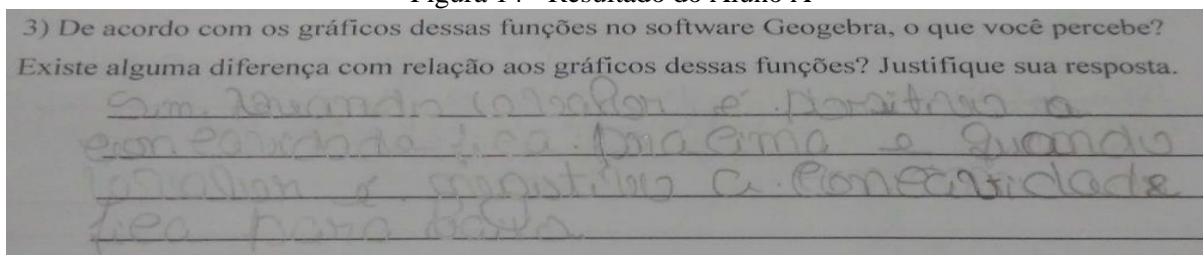 Figura 14 - Resultado do Aluno A
3) De acordo com os gráficos dessas funções no software Geogebra, o que você percebe?
Existe alguma diferença com relação aos gráficos dessas funções? Justifique sua resposta.
Sim. Quando é positivo a
concavidade fica pra cima e quando
é negativo a concavidade
fica para baixo